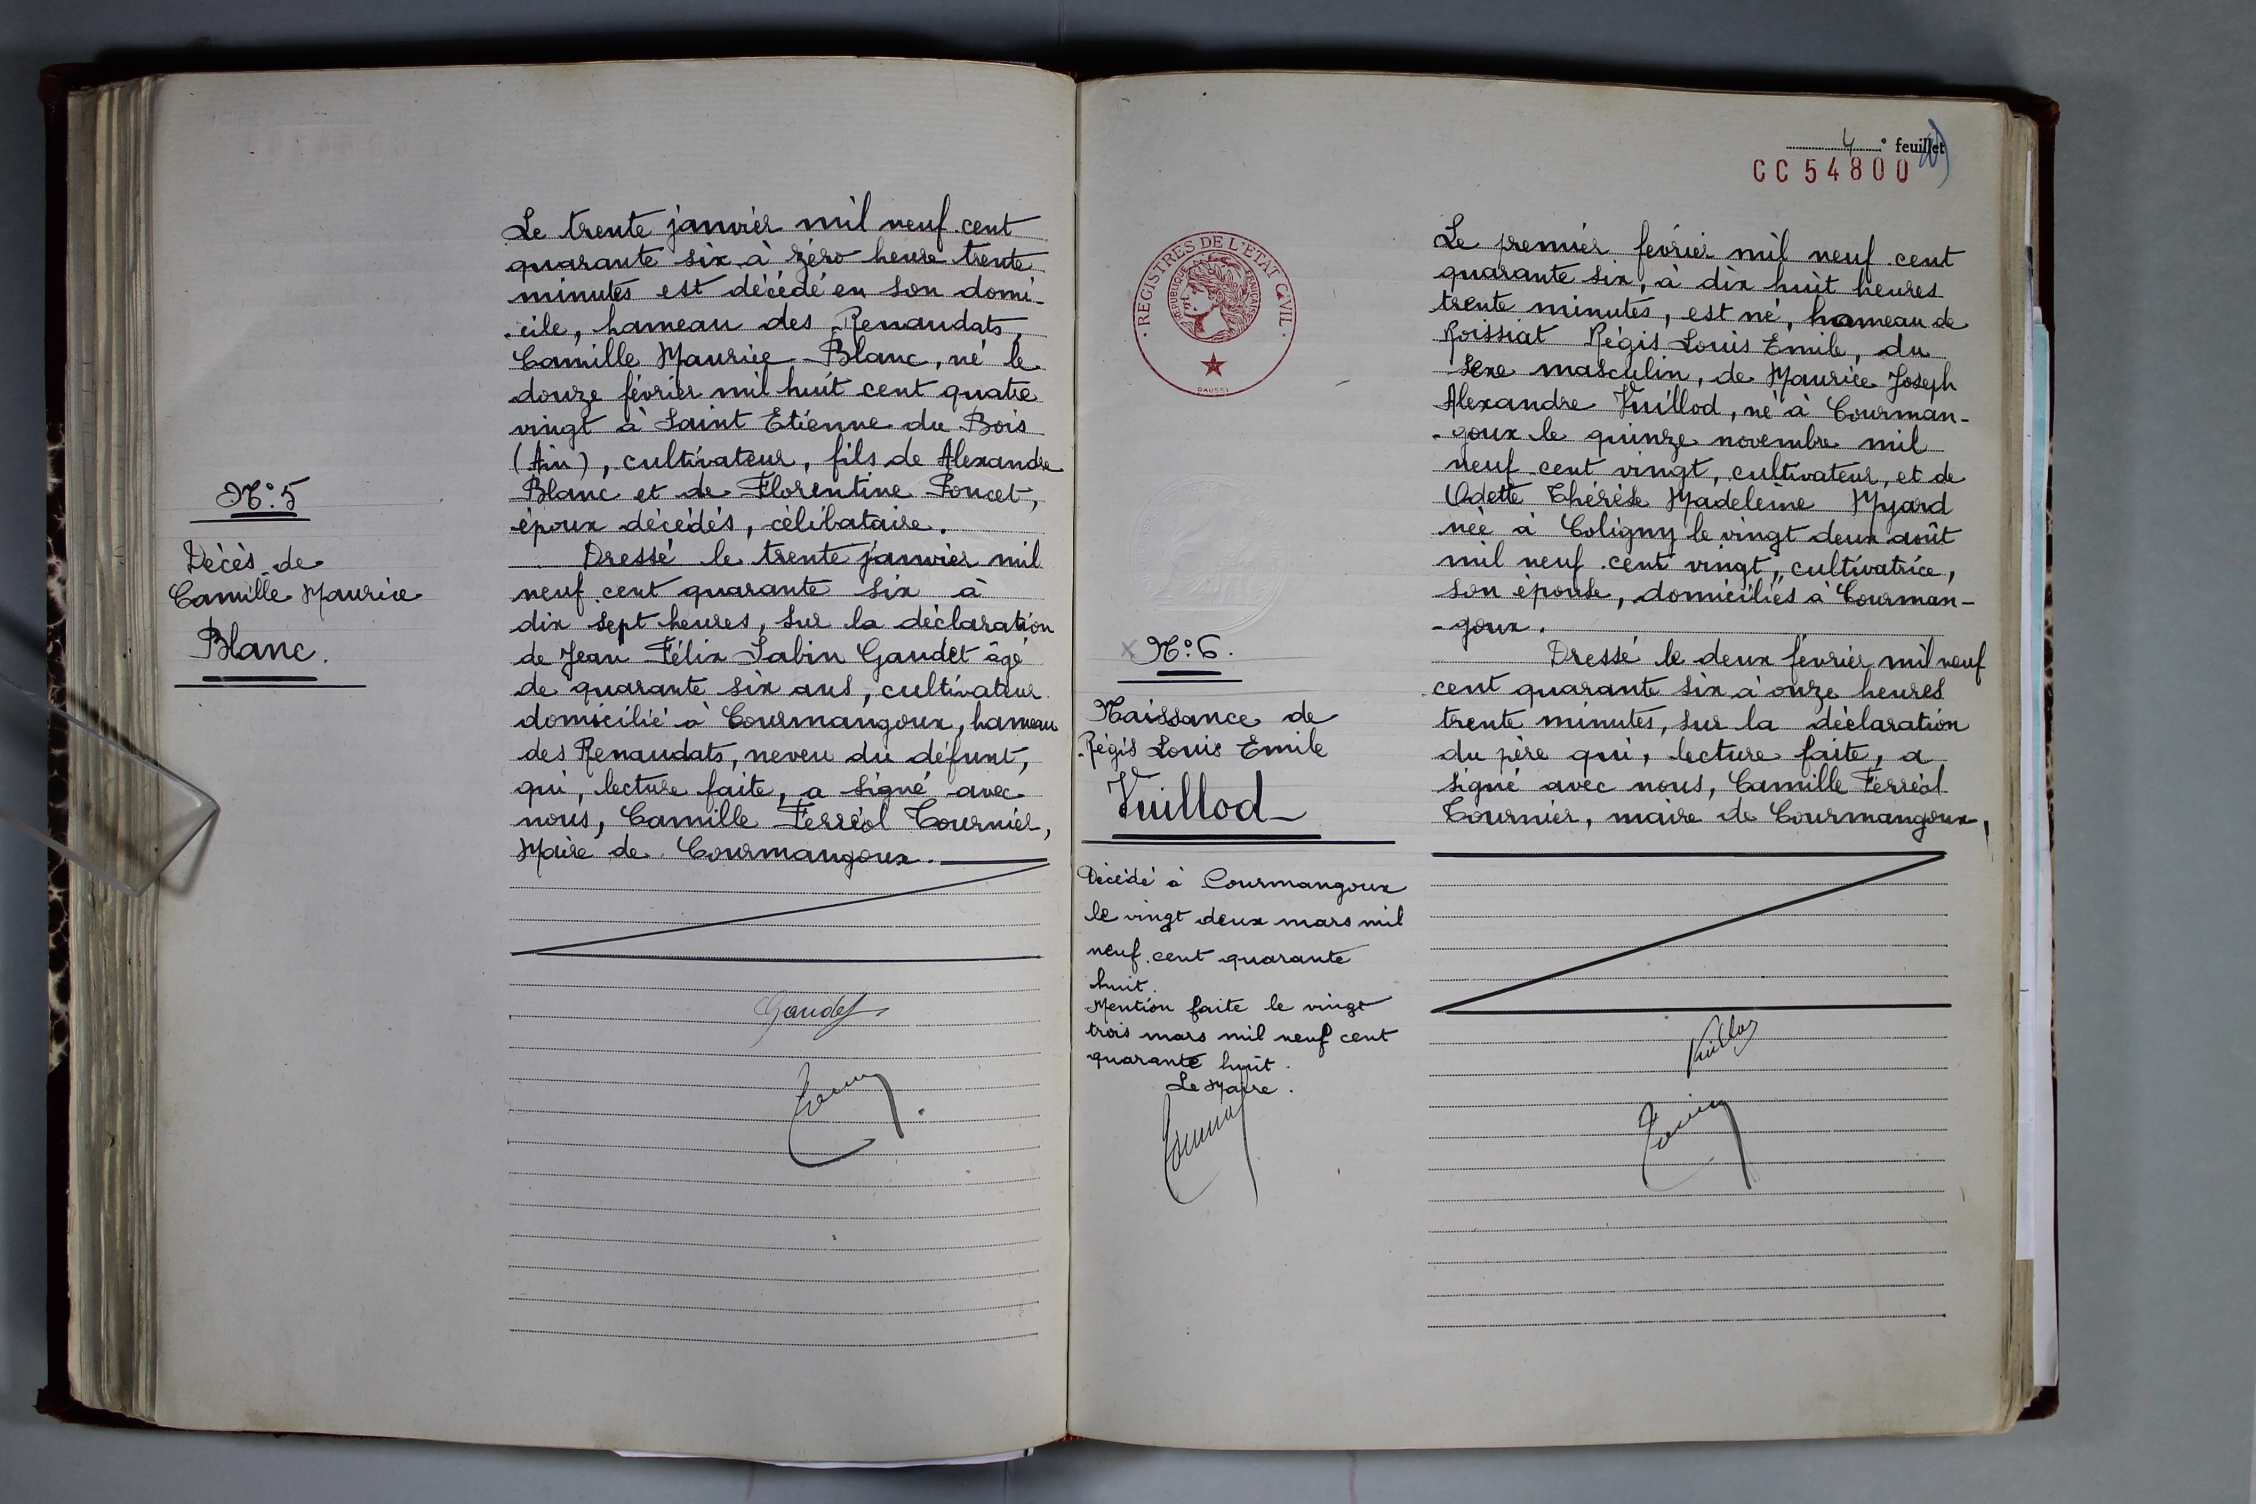 N° 5
Décès de
Camille Maurice
Blanc.
Le trente janvier mil neuf cent
quarante six à zéro heure trente
minutes est décédé en son domi-
cile, hameau des Renaudats,
Camille Maurice Blanc, né le
douze février mil huit cent quatre
vingt à Saint Etienne du Bois
(Ain), cultivateur, fils de Alexandre
Blanc et de Florentine Poncet,
époux décédés, célibataire.
Dressé le trente janvier mil
neuf cent quarante six à
dix sept heures, sur la déclaration
de Jean Félix Sabin Gaudet âgé
de quarante six ans, cultivateur
domicilié à Courmangoux, hameau
des Renaudats, neveu du défunt,
qui, lecture faite, a signé avec
nous, Camille Ferréol Tournier,
Maire de Courmangoux.
Gaudet
4° feuillet
CC 54800
· REGISTRES DE L'ETAT CIVIL ·
REPUBLIQUE FRANÇAISE
DAUSSI
N° 6.
Naissance de
Régis Louis Emile
Vuillod
Décédé à Courmangoux
le vingt deux mars mil
neuf cent quarante
huit.
Mention faite le vingt
trois mars mil neuf cent
quarante huit.
Le Maire.
Le premier février mil neuf cent
quarante six, à dix huit heures
trente minutes, est né, hameau de
Roissiat Régis Louis Emile, du
sexe masculin, de Maurice Joseph
Alexandre Vuillod, né à Courman-
-goux le quinze novembre mil
neuf cent vingt, cultivateur, et de
Odette Thérèse Madeleine Myard
née à Coligny le vingt deux août
mil neuf cent vingt, cultivatrice,
son épouse, domiciliés à Courman-
-goux.
Dressé le deux février mil neuf
cent quarante six à onze heures
trente minutes, sur la déclaration
du père qui, lecture faite, a
signé avec nous, Camille Ferréol
Tournier, maire de Courmangoux,
Vuillod